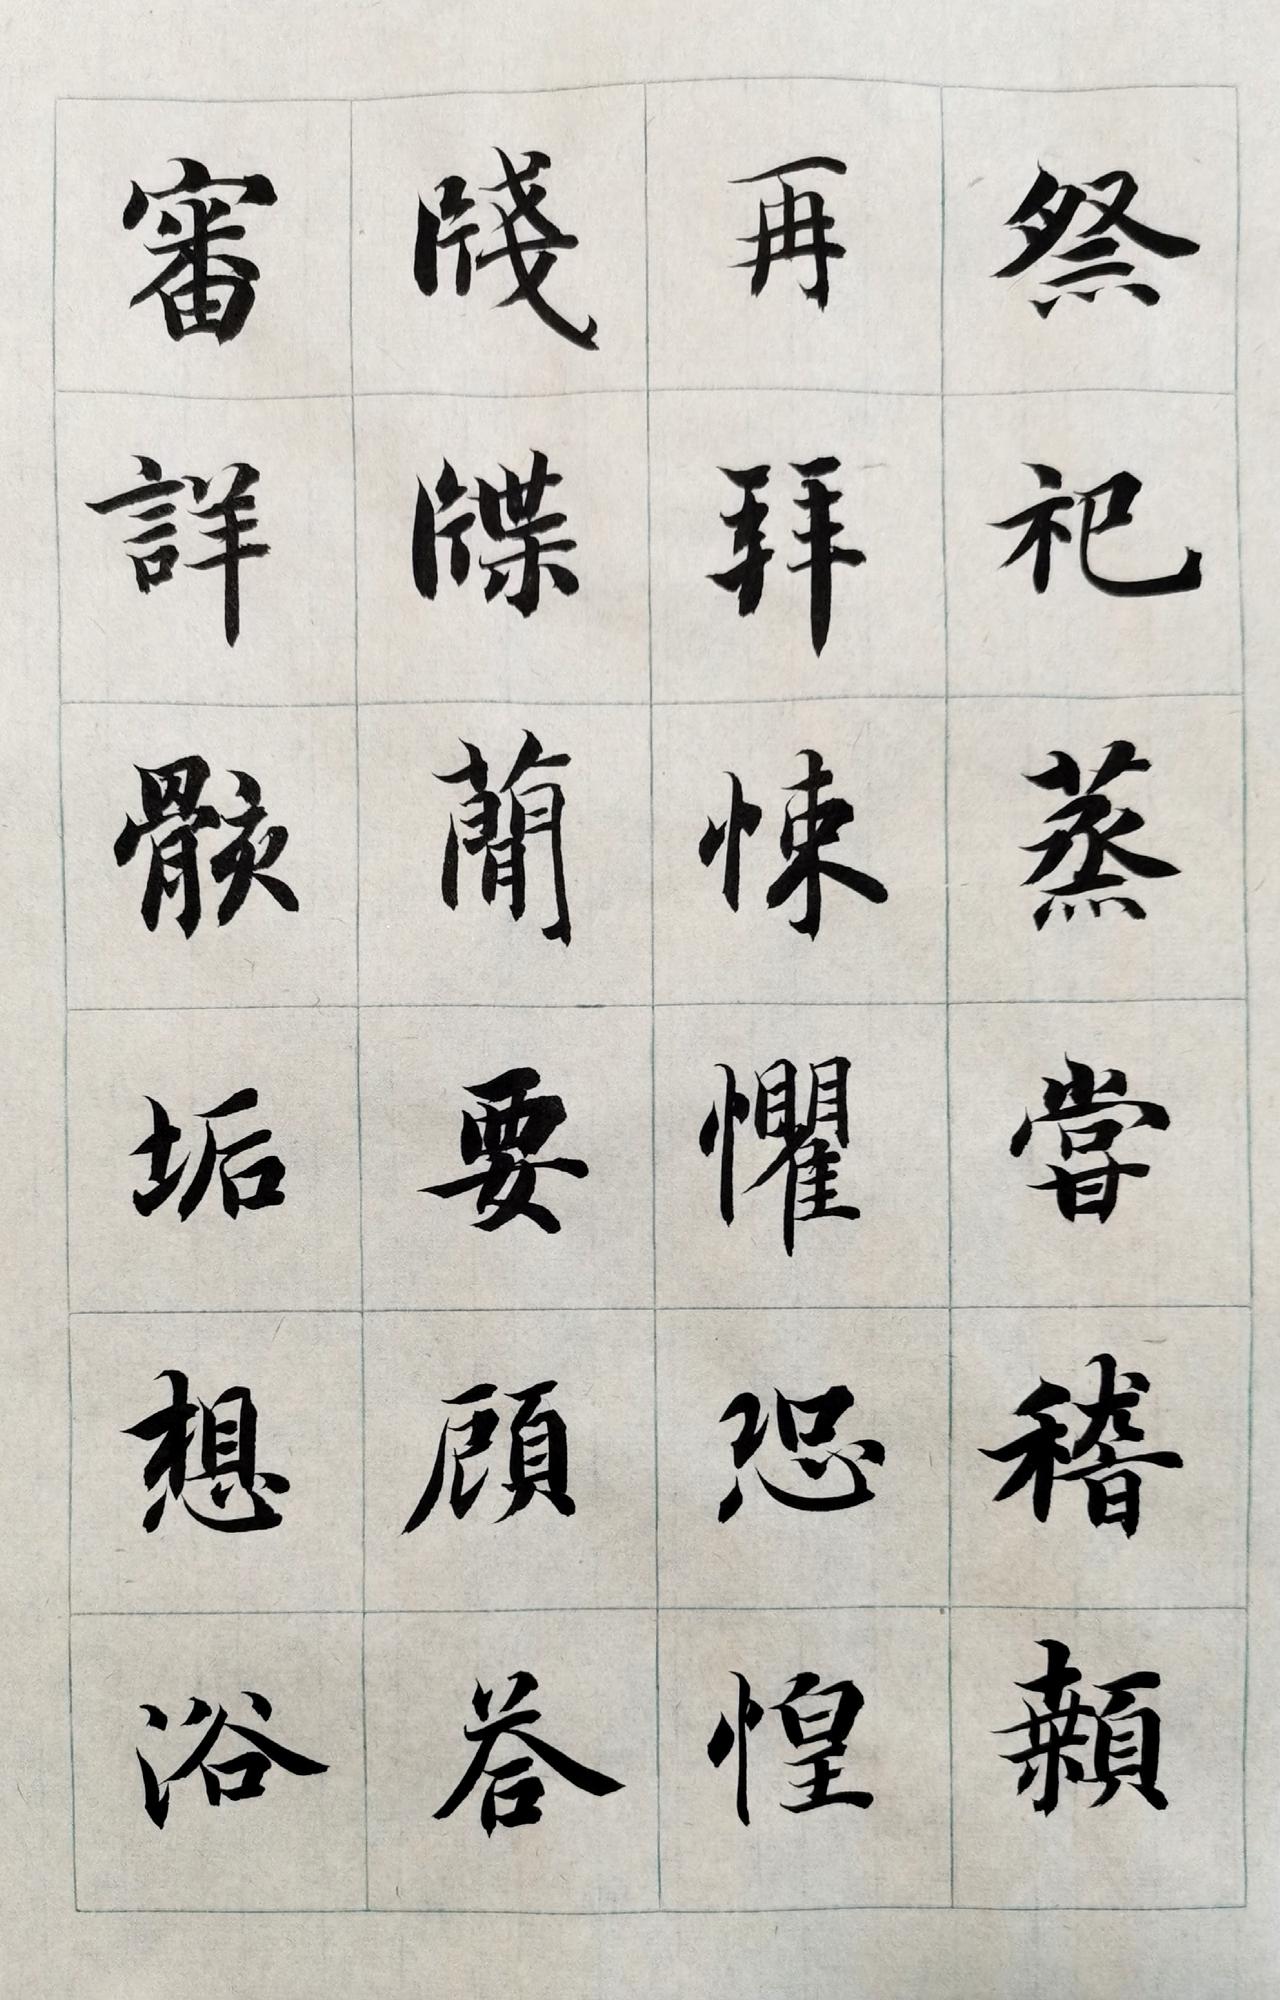 祭祀蒸甞稽顙
再拜悚懼恐惶
牋牒蕳要顧荅
審詳骸垢想浴